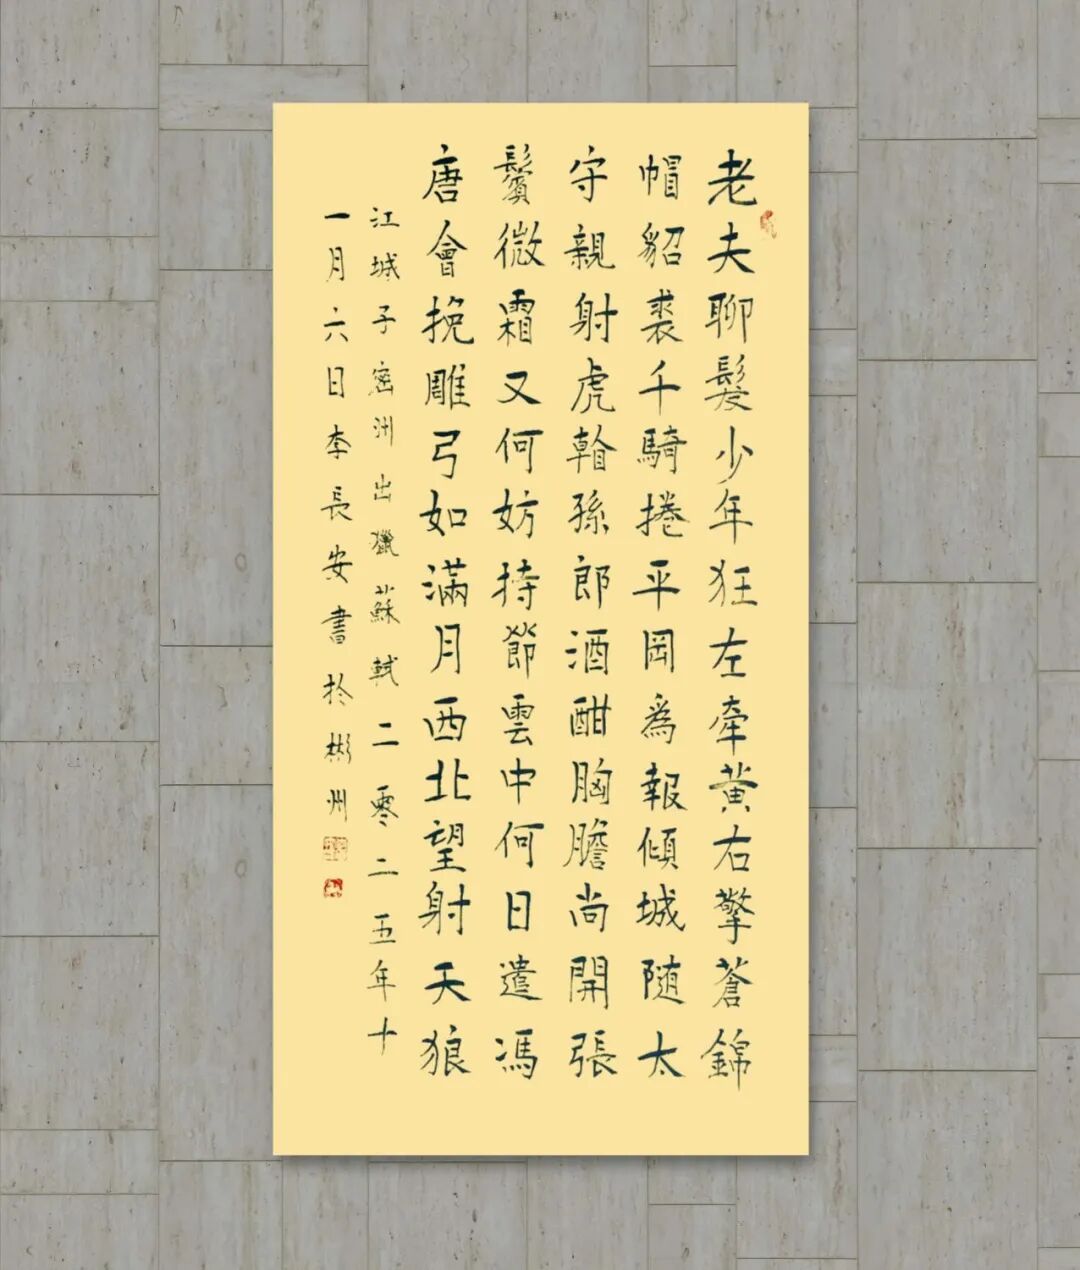 老夫聊髮少年狂左牽黃右擎蒼錦
帽貂裘千騎捲平岡為報傾城随太
守親射虎看孫郎酒酣胸膽尚開張
鬢微霜又何妨持節雲中何日遣馮
唐會挽雕弓如滿月西北望射天狼
江城子密洲出獵蘇軾二零二五年十
一月六日李長安書於彬州